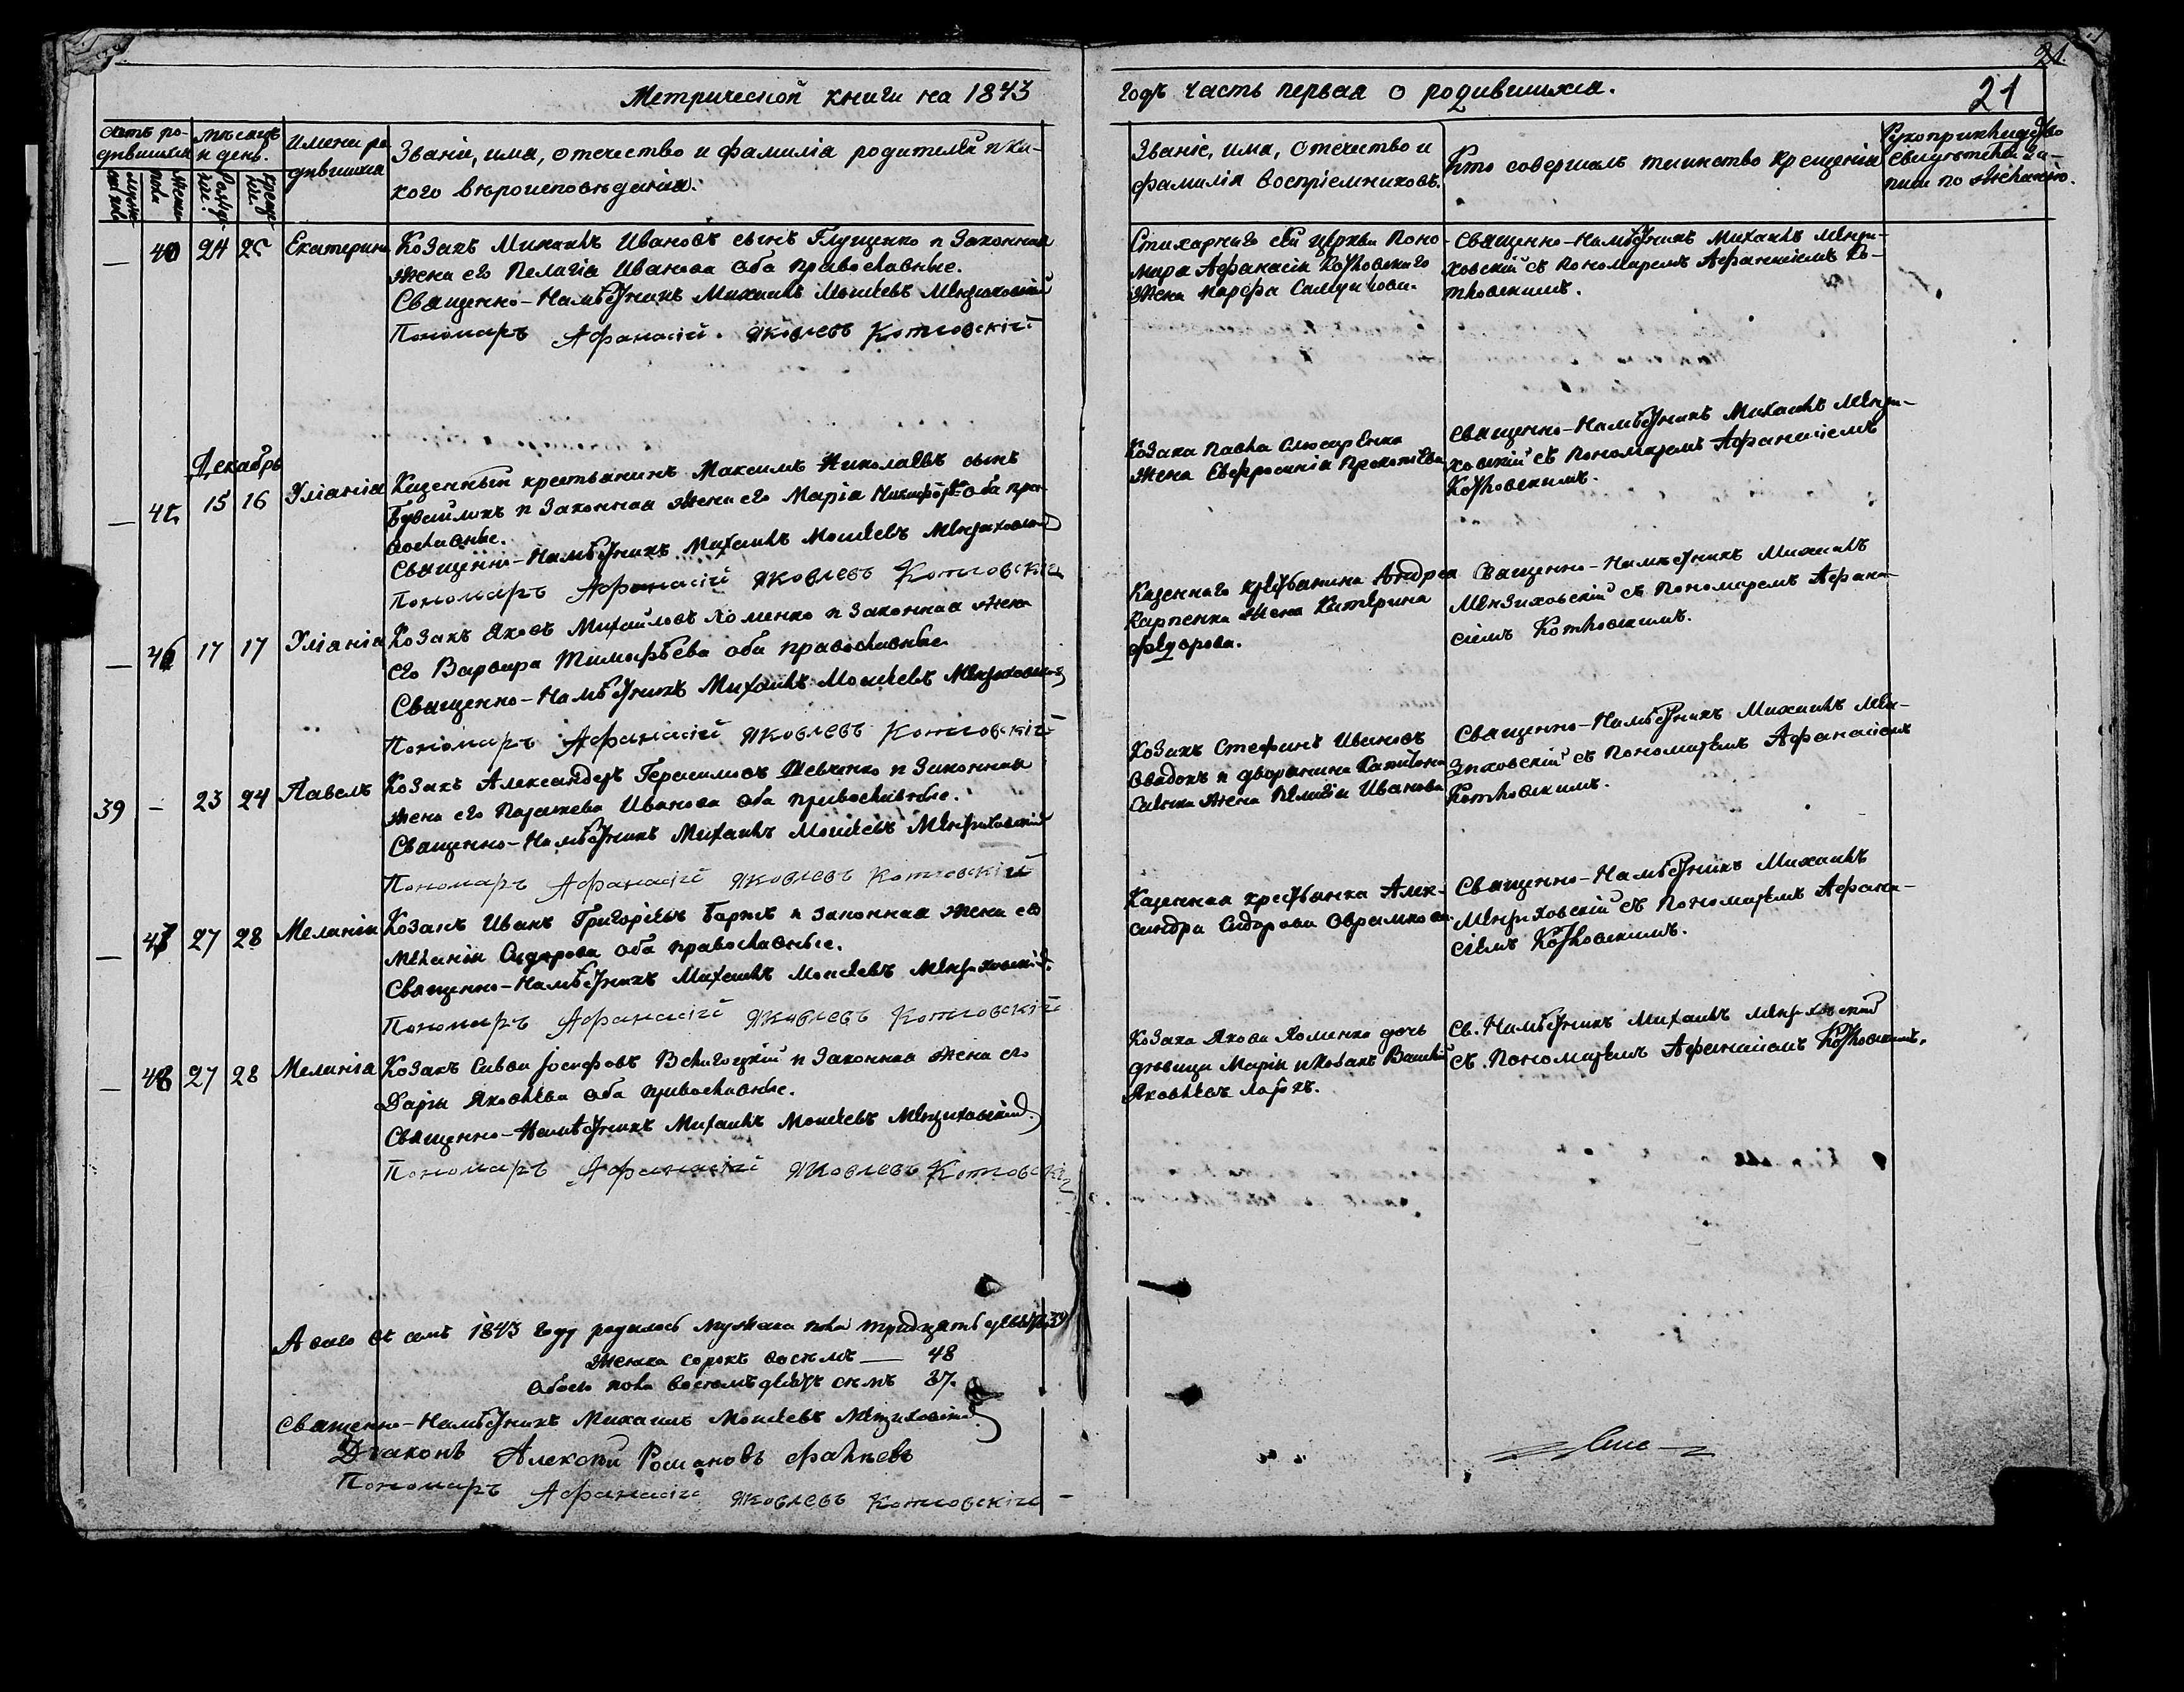 21.
Метрической книги на 1843
годъ часть первая о родившихся.
21
Счетъ ро-
дившихся
мужеска пола
женска пола
Мѣсяцъ
и день.
рожде-
нія.
креще-
нія.
Имена ро
дившихся
Званіе, имя, отечество и фамилія родителей и ка-
кого вѣроисповѣданія.
Званіе, имя, отечество и
фамилія воспріемниковъ.
Кто совершалъ таинство крещенія
Рукоприкладство
свидѣтелей за-
писи по желанію.
— 40 24 25 Екатерина
Козакъ Михаилъ Ивановъ сынъ Глущенко и законная
жена его Пелагія Иванова оба православные.
Священно-Намѣстникъ Михаилъ Моисеевъ Мензиховскій
Пономаръ Афанасій Яковлевъ Котловскій
Стихарнаго сей церкви Поно-
мара Афанасія Котловскаго
жена Марфа Самуилова.
Священно-Намѣстникъ Михаилъ Мензи-
ховскій съ Пономаремъ Афанасіемъ Ко-
тловскимъ.
Декабрь
— 45 15 16 Уліанія
Казенный крестьянинъ Максимъ Николаевъ сынъ
и законная жена его Марія оба пра-
вославные.
Священно-Намѣстникъ Михаилъ Моисеевъ Мензиховскій
Пономаръ Афанасій Яковлевъ Котловскій
Козака Павла Слюсаренка
жена Евфросинія Прокопіева
Священно-Намѣстникъ Михаилъ Мензи-
ховскій съ Пономаремъ Афанасіемъ
Котловскимъ.
— 46 17 17 Уліанія
Козакъ Яковъ Михайловъ Хоменко и законная жена
его Варвара Тимофѣева оба православные
Священно-Намѣстникъ Михаилъ Моисеевъ Мензиховскій
Пономаръ Афанасій Яковлевъ Котловскій
Казеннаго крестьянина Андрея
Карпенка жена Катерина
Федорова.
Священно-Намѣстникъ Михаилъ
Мензиховскій съ Пономаремъ Афана-
сіемъ Котловскимъ.
39 — 23 24 Павелъ
Козакъ Александръ Герасимовъ Шевченко и законная
жена его Параскева Иванова оба православные.
Священно-Намѣстникъ Михаилъ Моисеевъ Мензиховскій
Пономаръ Афанасій Яковлевъ Котловскій
Козакъ Стефанъ Ивановъ
и дворянина
жена Пелагія Иванова
Священно-Намѣстникъ Михаилъ Мен-
зиховскій съ Пономаремъ Афанасіемъ
Котловскимъ.
— 47 27 28 Меланія
Козакъ Иванъ Григоріевъ и законная жена его
Меланія Сидорова оба православные.
Священно-Намѣстникъ Михаилъ Моисеевъ Мензиховскій.
Пономаръ Афанасій Яковлевъ Котловскій
Казенная крестьянка Алек-
сандра Сидорова
Священно-Намѣстникъ Михаилъ
Мензиховскій съ Пономаремъ Афана-
сіемъ Котловскимъ.
— 48 27 28 Меланія
Козакъ Савва Іосифовъ и законная жена его
Дарія Яковлева оба православные.
Священно-Намѣстникъ Михаилъ Моисеевъ Мензиховскій
Пономаръ Афанасій Яковлевъ Котловскій
Козака Якова Хоменка дочь
дѣвица Марія и козакъ Василій
Яковлевъ
Св. Намѣстникъ Михаилъ Мензиховскій
съ Пономаремъ Афанасіемъ Котловскимъ.
А всего въ семъ 1843 году родилось мужеска пола тридцать девять 39
женска сорокъ восемь — 48
обоего пола восемьдесятъ семь 87.
Священно-Намѣстникъ Михаилъ Моисеевъ Мензиховскій
Діаконъ Алексій Романовъ
Пономаръ Афанасій Яковлевъ Котловскій —